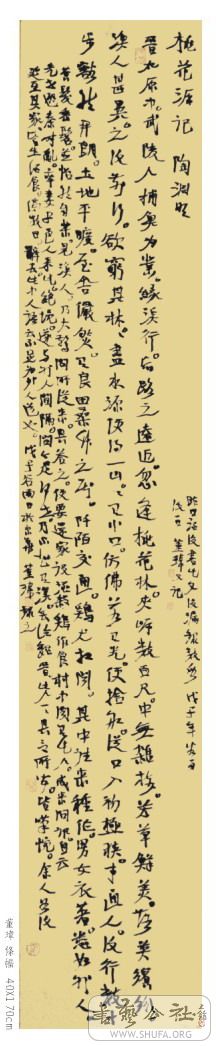 桃花源记 陶渊明
晋太原中武陵人捕鱼为业缘溪行忘路之远近忽逢桃花林夹岸数百尺中无杂树芳草鲜美落英缤纷
渔人甚异之复前行欲穷其林林尽水源便得一山山有小口仿佛若有光便舍船从口入初极狭才通人复行数十
步豁然开朗土地平旷屋舍俨然有良田桑竹之属阡陌交通鸡犬相闻其中往来种作男女衣著悉如外人
黄发垂髫并怡然自乐见渔人乃大惊问所从来具答之便要还家设酒杀鸡作食村中闻有此人咸来问讯自云
先世避秦时乱率妻子邑人来此绝境遂与外人间隔问今是何世乃不知有汉无论魏晋此人一一具言所闻皆叹惋余人各复
延至其家皆出酒食停数日辞去此中人语云不足为外人道也
戊子
董璋
戊子年
董璋又记
董璋 條幅 40X170cm
書法公社
WWW.SHUFA.ORG